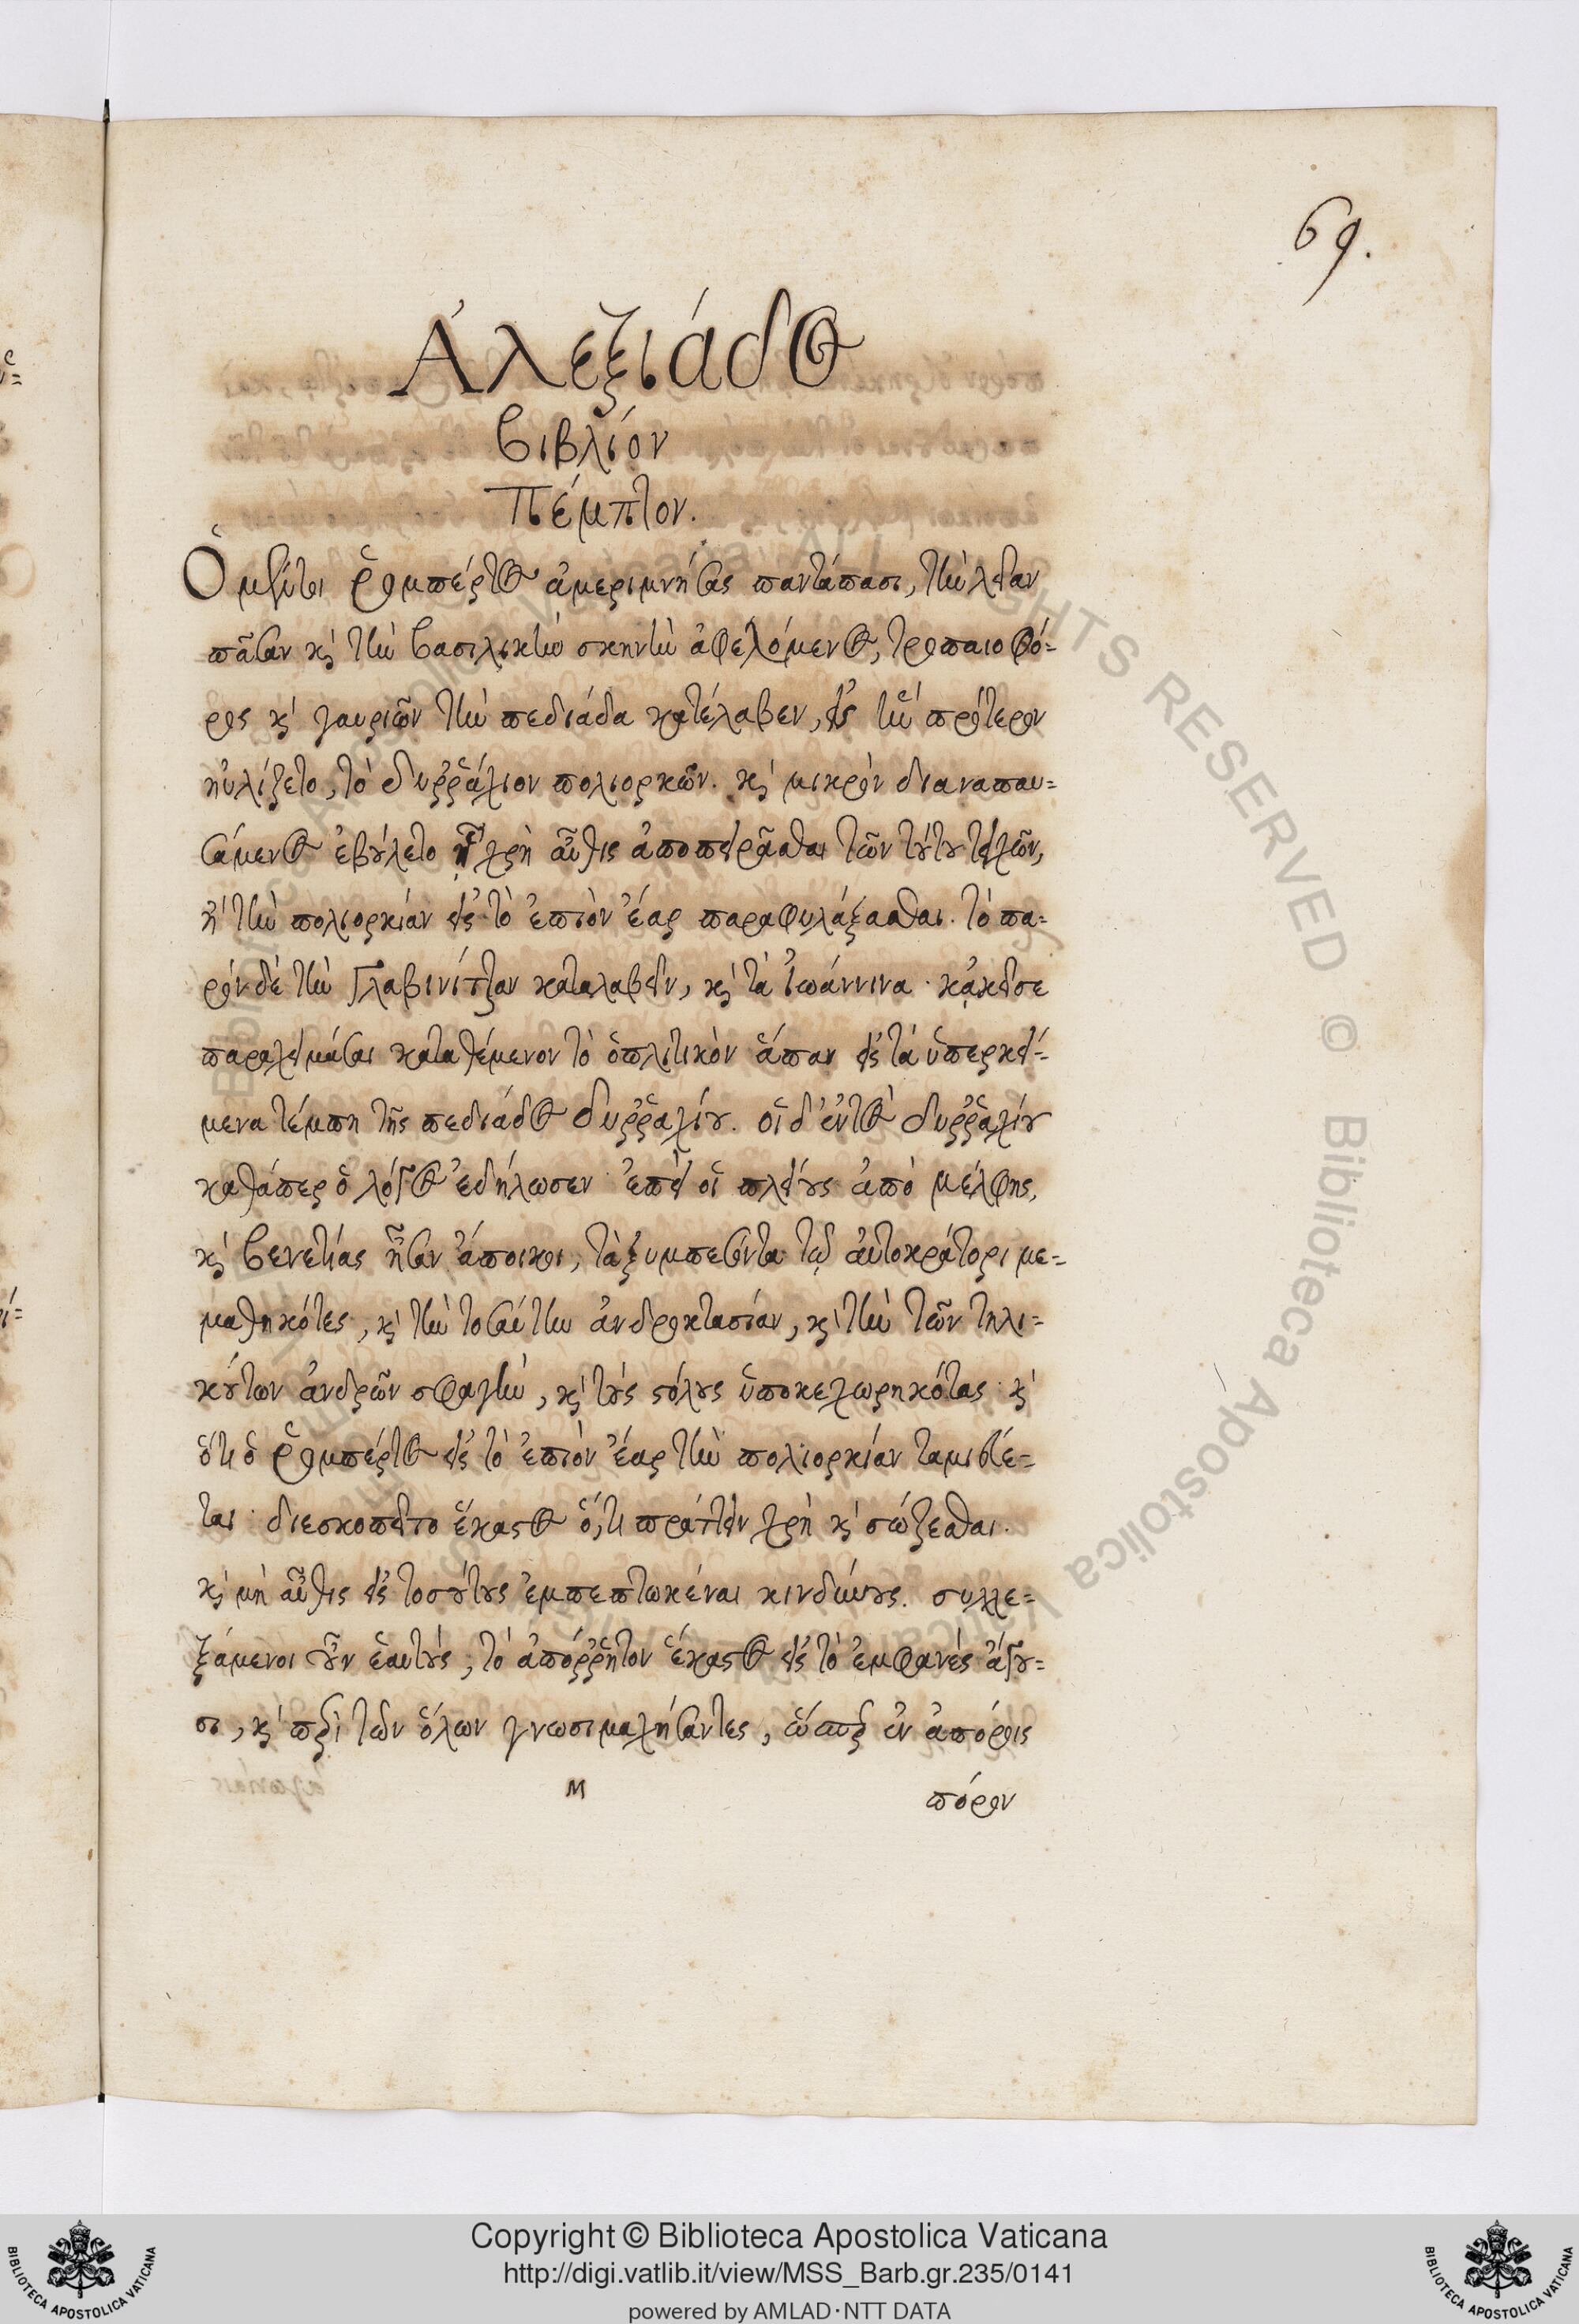 69.
Ἀλεξιάδος
βιβλίον
Πέμπτον.
Ὁ μέντοι Ῥομπέρτος ἀμεριμνήσας παντάπασι, τὴν λείαν
πᾶσαν καὶ τὴν βασιλικὴν σκηνὴν ἀφελόμενος, τροπαιοφό=
ρος καὶ γαυριῶν τὴν πεδιάδα κατέλαβεν, εἰς ἣν πρότερον
ηὐλίζετο, τὸ Δυρῥάχιον πολιορκῶν. καὶ μικρὸν διαναπαυ=
σάμενος ἐβούλετο εἰ χρὴ αὖθις ἀποπειρᾶσθαι τῶν τούτου τειχῶν,
ἢ τὴν πολιορκίαν εἰς τὸ ἐπιὸν ἔαρ παραφυλάξασθαι. τὸ πα=
ρὸν δὲ τὴν Γλαβινίτζαν καταλαβεῖν, καὶ τὰ Ἰωάννινα· κᾀκεῖσε
παραχειμάσαι καταθέμενον τὸ ὁπλιτικὸν ἅπαν εἰς τὰ ὑπερκεί=
μενα τέμπη τῆς πεδιάδος Δυρῥαχίου. οἱ δ' ἐντὸς Δυρῥαχίου
καθάπερ ὁ λόγος ἐδήλωσεν· ἐπεὶ οἱ πλείους ἀπὸ Μέλφης,
καὶ Βενετίας ἦσαν ἄποικοι, τὰ ξυμπεσόντα τῷ αὐτοκράτορι με=
μαθηκότες, καὶ τὴν τοσαύτην ἀνδροκτασίαν, καὶ τὴν τῶν τηλι=
κούτων ἀνδρῶν σφαγὴν, καὶ τοὺς στόλους ὑποκεχωρηκότας· καὶ
ὅτι ὁ Ῥομπέρτος εἰς τὸ ἐπιὸν ἔαρ τὴν πολιορκίαν ταμιεύε=
ται· διεσκοπεῖτο ἕκαστος ὅ,τι πράττειν χρὴ καὶ σώζεσθαι.
καὶ μὴ αὖθις εἰς τοσούτους ἐμπεπτωκέναι κινδύνους. συλλε=
ξάμενοι οὖν ἑαυτοὺς, τὸ ἀπόρῥητον ἕκαστος εἰς τὸ ἐμφανὲς ἄγου=
σι, καὶ περὶ τῶν ὅλων γνωσιμαχήσαντες, ὥσπερ ἐν ἀπόροις
M
πόρον
Copyright © Biblioteca Apostolica Vaticana
http://digi.vatlib.it/view/MSS_Barb.gr.235/0141
powered by AMLAD·NTT DATA